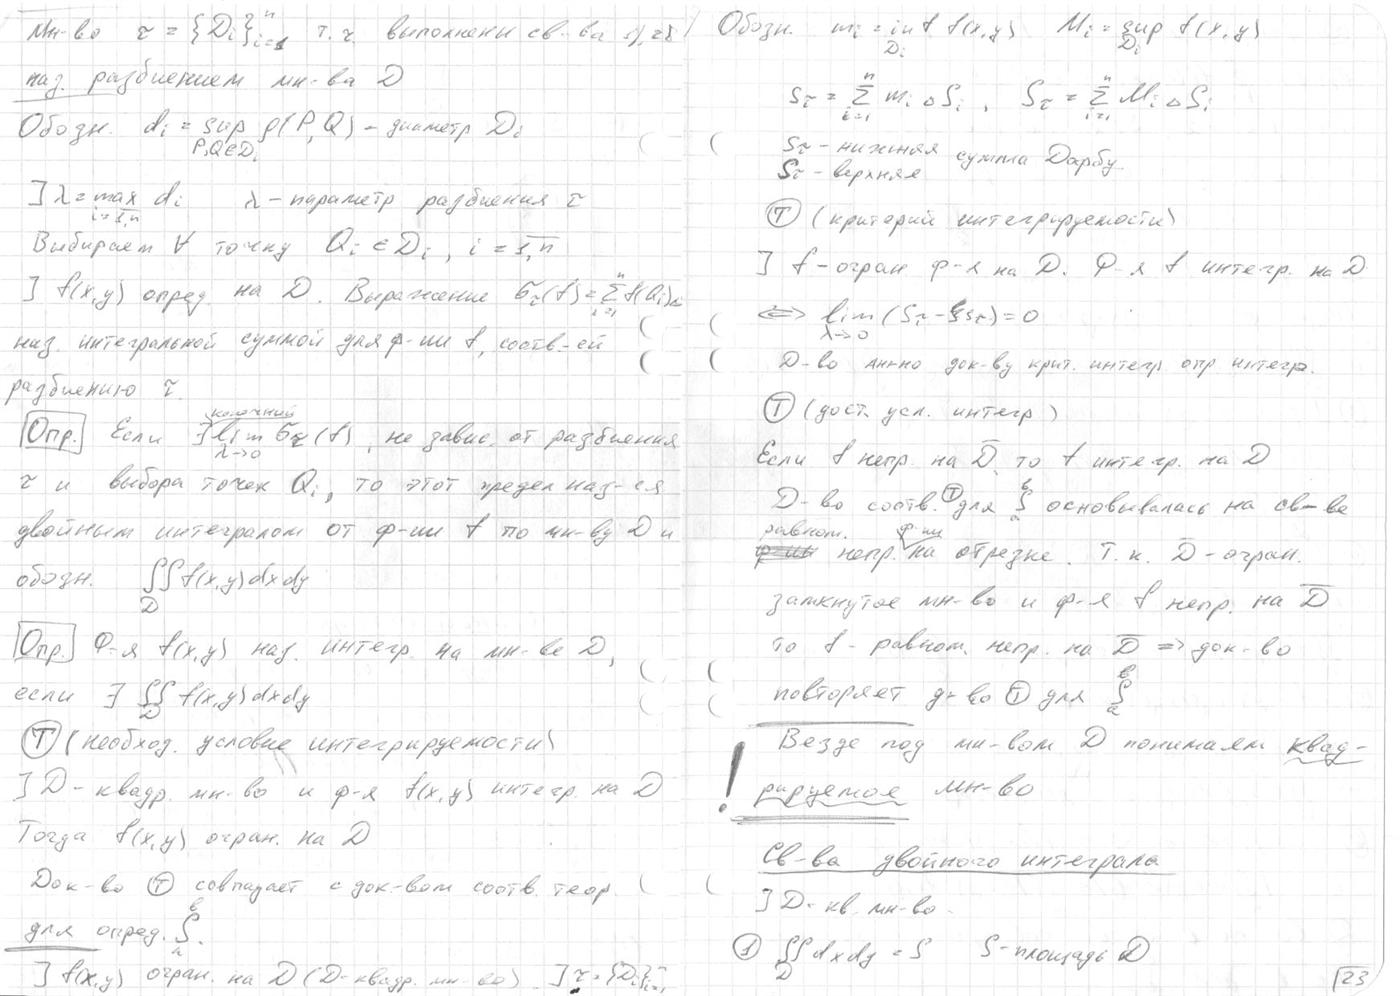 Мн-во τ = {Dᵢ}ⁿᵢ₌₁ т.ч. выполнены св-ва 1), 2)
наз. разбиением мн-ва D
Обозн. dᵢ = sup ρ(P,Q) – диаметр Dᵢ
P,Q∈Dᵢ
] λ = max dᵢ λ – параметр разбиения τ
i=1,n
Выбираем ∀ точку Qᵢ ∈ Dᵢ, i = 1,n
] f(x,y) опред. на D. Выражение σ_τ(f) = Σ f(Qᵢ)
наз. интегральной суммой для ф-ии f, соотв-ей
разбиению τ
конечный
Опр. Если ∃ lim σ_τ(f), не завис. от разбиения
λ→0
τ и выбора точек Qᵢ, то этот предел наз-ся
двойным интегралом от ф-ии f по мн-ву D и
обозн. ∬ f(x,y)dxdy
D
Опр. Ф-я f(x,y) наз. интегр. на мн-ве D,
если ∃ ∬ f(x,y)dxdy
D
Ⓣ (необход. условие интегрируемости)
] D – квадр. мн-во и ф-я f(x,y) интегр. на D
Тогда f(x,y) огран. на D
Док-во Ⓣ совпадает с док-вом соотв. теор.
для опред. ∫ₐᵇ.
] f(x,y) огран. на D (D-квадр. мн-во). ] τ = {Dᵢ}ⁿᵢ₌₁
Обозн. mᵢ = inf f(x,y) Mᵢ = sup f(x,y)
Dᵢ Dᵢ
s_τ = Σ mᵢ ΔSᵢ, S_τ = Σ Mᵢ ΔSᵢ
s_τ – нижняя сумма Дарбу
S_τ – верхняя
Ⓣ (критерий интегрируемости)
] f – огран ф-я на D. Ф-я f интегр. на D
⟺ lim (S_τ – s_τ) = 0
λ→0
Д-во ан-но док-ву крит. интегр опр интегр.
Ⓣ (дост. усл. интегр)
Если f непр. на D̅, то f интегр. на D
Д-во соотв. Ⓣ для ∫ₐᵇ основывалась на св-ве
равном. ф-ии
непр. на отрезке. Т.к. D̅ – огран.
замкнутое мн-во и ф-я f непр. на D̅
то f – равном. непр. на D̅ ⇒ док-во
повторяет д-во Ⓣ для ∫ₐᵇ
! Везде под мн-вом D понимаем квад-
рируемое мн-во
Св-ва двойного интеграла
] D – кв. мн-во.
① ∬ dxdy = S S – площадь D
D
23